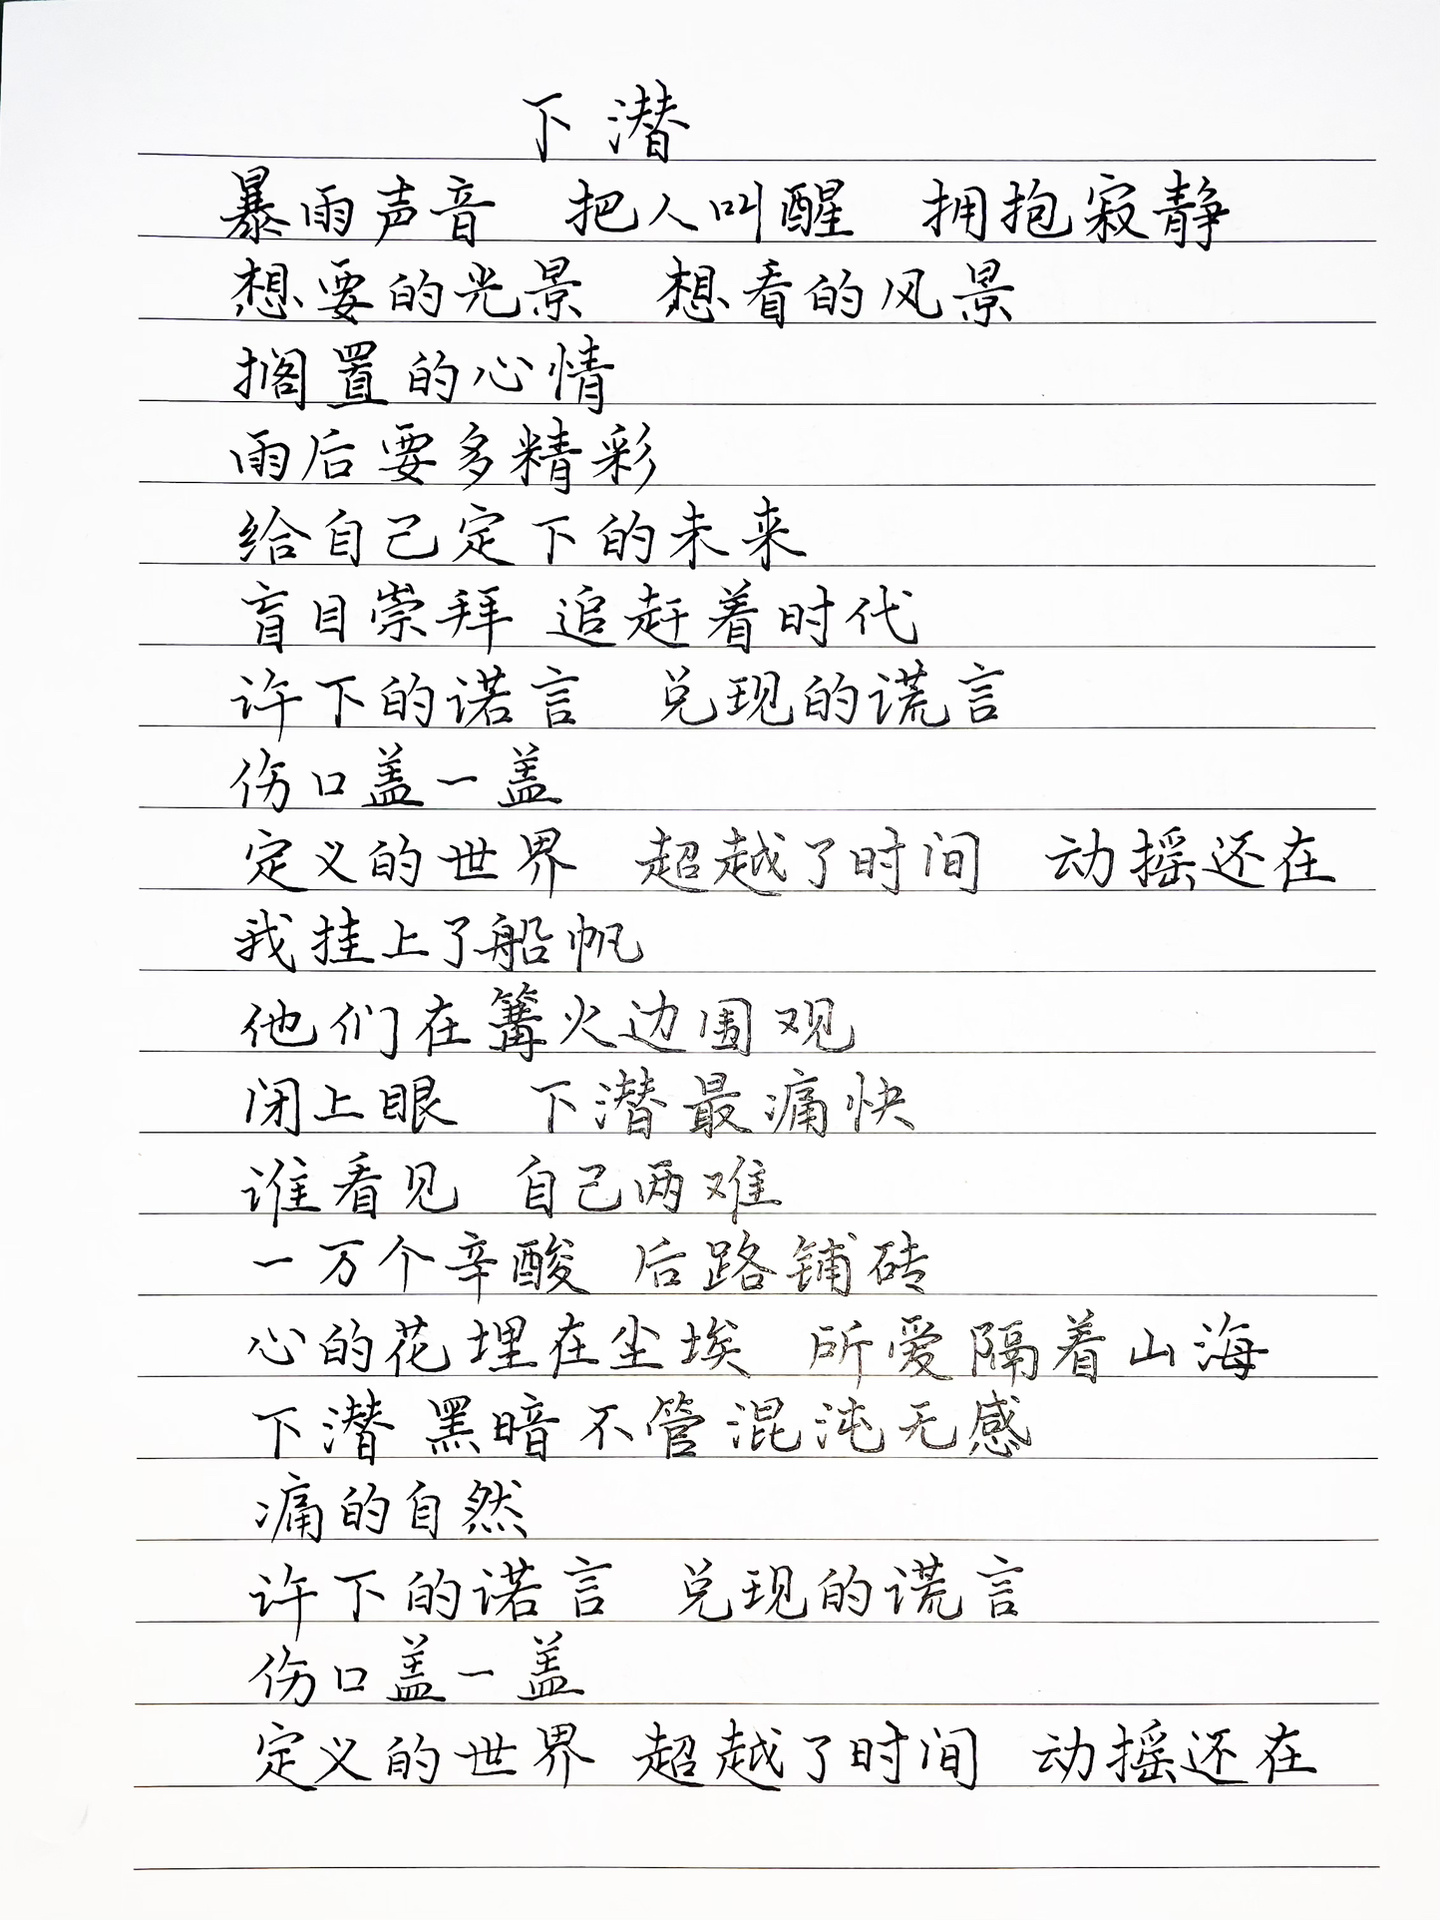 下潜
暴雨声音 把人叫醒 拥抱寂静
想要的光景 想看的风景
搁置的心情
雨后要多精彩
给自己定下的未来
盲目崇拜 追赶着时代
许下的诺言 兑现的谎言
伤口盖一盖
定义的世界 超越了时间 动摇还在
我挂上了船帆
他们在篝火边围观
闭上眼 下潜最痛快
谁看见 自己两难
一万个辛酸 后路铺砖
心的花埋在尘埃 所爱隔着山海
下潜 黑暗不管混沌无感
痛的自然
许下的诺言 兑现的谎言
伤口盖一盖
定义的世界 超越了时间 动摇还在